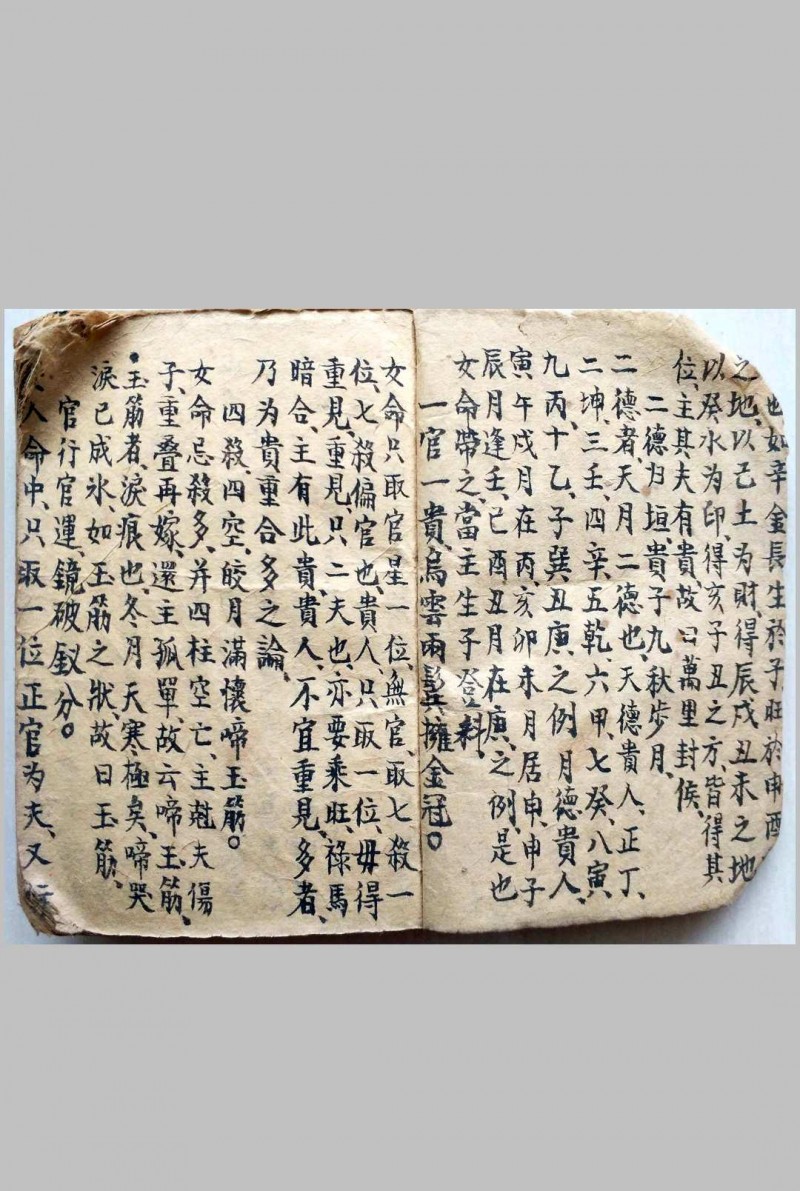 也如辛金長生於子旺於申酉
之地、以己土为財、得辰戌丑未之地
以癸水为印、得亥子丑之方、皆得其
位、主其夫有貴、故曰萬里封侯、
二德归垣、貴子九秋步月、
二德者、天月二德也、天德貴人、正丁、
二坤、三壬、四辛、五乾、六甲、七癸、八寅、
九丙、十乙、子巽、丑庚、之例月德貴人、
寅午戌月在丙、亥卯未月居申、申子
辰月逢壬、己酉丑月在庚、之例、是也
女命帶之、當主生子登科、
一官一貴、烏雲兩鬓擁金冠。
女命只取官星一位、無官、取七殺一
位、七殺偏官也、貴人、只取一位、毋得
重見、重見、只二夫也、亦要乘旺、祿馬
暗合、主有此貴、貴人、不宜重見、多者、
乃为貴重合多之論、
四殺、四空、皎月滿懷啼玉筋。
女命忌殺多、并四柱空亡、主尅夫傷
子、重叠再嫁、還主孤單、故云啼玉筋、
玉筋者、淚痕也、冬月天寒極矣、啼哭
淚已成氷、如玉筋之狀、故曰玉筋、
官行官運、鏡破釵分。
人命中、只取一位正官为夫、又